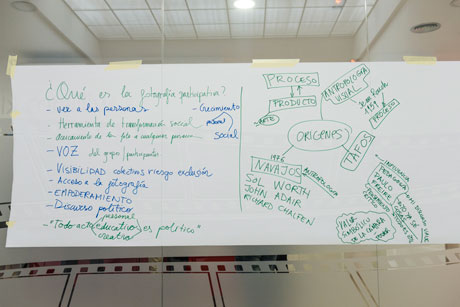 ¿Qué es la fotografía participativa?
- vee a las personas
- Crecimiento
personal
social
- Herramienta de transformación social
- acercamiento de la foto a cualquier persona
- VOZ del grupo/participantes
- VISIBILIDAD colectivos riesgo exclusión
- Acceso a la fotografía
- EMPODERAMIENTO
- Discurso político
personal
- "Todo acto educativo es político"
creativo
PROCESO
PRODUCTO
ARTE
ORIGENES
ANTROPOLOGIA
VISUAL
Jean Rouch
PROCESO
TAFOS
1966
NAVAJOS
ANTROPOLOGIA
SOL WORTH
JOHN ADAIR
RICHARD CHALFEN
VALOR
SIMBOLICO
DE LA CAMARA